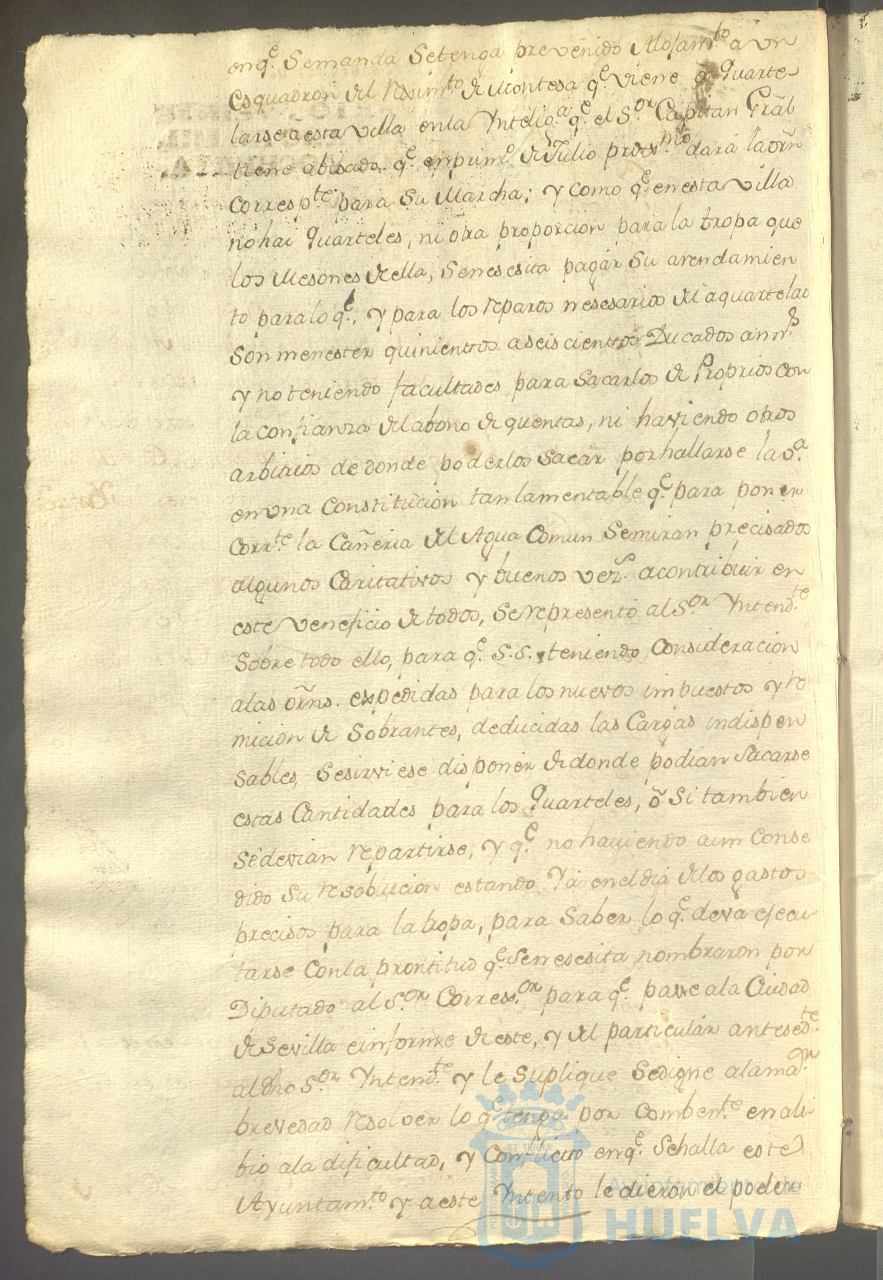 enq.e Semanda Setenga prevenido Alojam.to a vn
Esquadron del Reximt.o de Montesa q.e viene a Quarte
larse a esta villa enla Yntelig.a q.e el S.or Capitan Gral
tiene abisado q.e en prim.o de Julio prox.mo dará la orñ
Corresp.te para Su Marcha; y como q.e en esta villa
no hai Quarteles, ni otra proporcion para la tropa que
los Mesones de ella, Senesesita pagar Su arendamien
to para lo q.e, y para los reparos nesesarios del aquartelar
Son menester quinientos a seis cientos Ducados
y no teniendo facultades para Sacarlos de Proprios con
la confianza del abono de quentas, ni haviendo otros
arbitrios de donde poderlos Sacar por hallarse la v.a
en vna Constitucion tan lamentable q.e para poner
Corr.te la Cañeria del Agua Comun Semiran precisados
algunos Caritativos y buenos vez.s a contribuir en
este veneficio de todos, Se representó al S.or Yntend.te
Sobre todo ello, para q.e S.S. teniendo Consideracion
alas orñs. expedidas para los nuevos impuestos y re
micion de Sobrantes, deducidas las Cargas indispen
Sables, Sesirviese disponer de donde podian Sacarse
estas Cantidades para los Quarteles, ó Si tambien
Se devian repartirse, y q.e no haviendo aun Conse
dido Su resoblucion estando Ya en el dia de los gastos
precisos para la tropa, para Saber lo q.e deva ejecu
tarse Conla prontitud q.e Senesesita nombraron por
Diputado al S.or Correx.or para q.e passe a la Ciudad
de Sevilla e informe de este, y del particular antesed.te
al dho S.or Yntend.te y le Suplique Sedigne ala ma.or
brevedad resolver lo q.e tenga por Combent.e en ali
bio ala dificultad, y Conflicto enq.e Sehalla este
Ayuntam.to y a este Yntento le dieron el poder
Ayuntamiento de
HUELVA